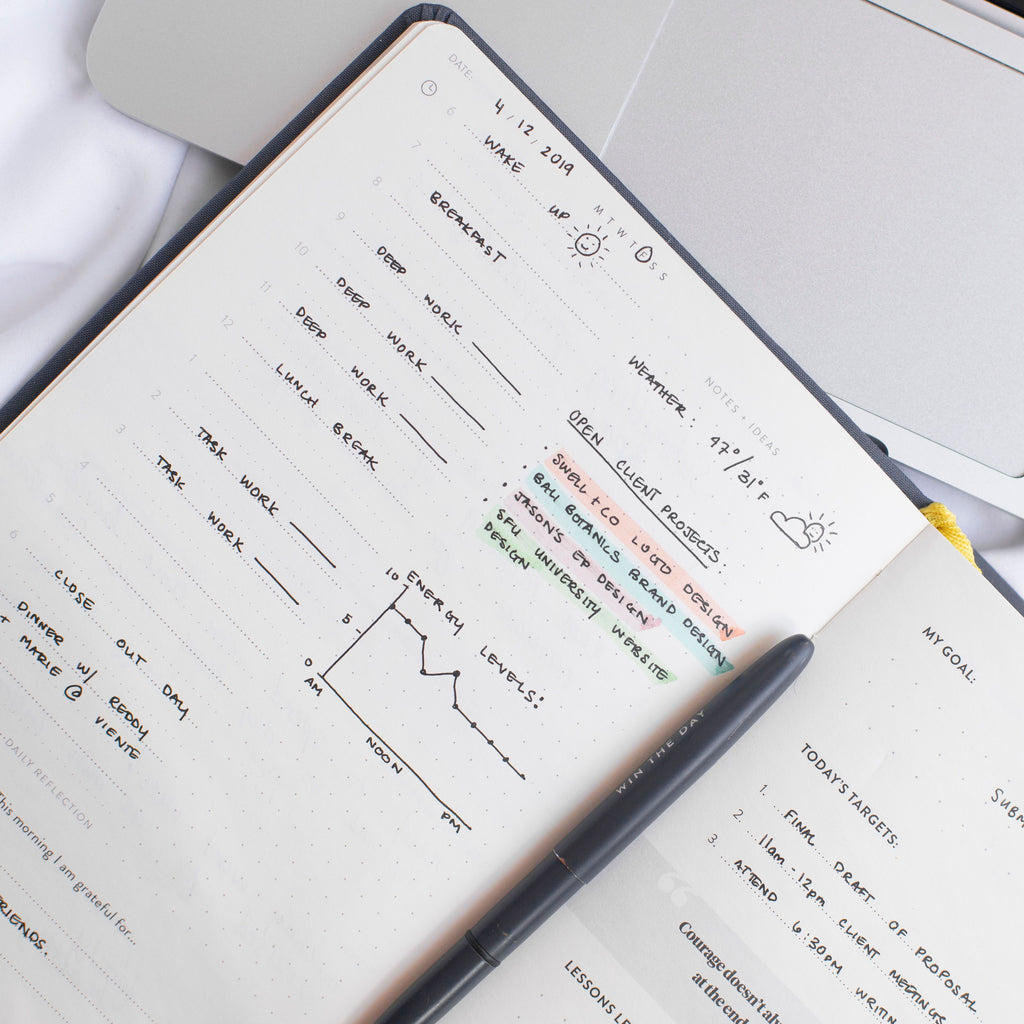 DATE: 4 / 12 / 2019
M T W T F S S
6 WAKE UP
7
8 BREAKFAST
9 DEEP WORK
10 DEEP WORK
11 DEEP WORK
12 LUNCH BREAK
1
2 TASK WORK
3 TASK WORK
4
5
6 CLOSE OUT DAY
DINNER W/ REDDY
MARIE @ VIENTE
NOTES + IDEAS
WEATHER: 47°/31°F
OPEN CLIENT PROJECTS:
SWELL + CO LOGO DESIGN
BALI BOTANICS BRAND DESIGN
JASON'S EP DESIGN
SFU UNIVERSITY WEBSITE
DESIGN
ENERGY LEVELS:
10
5
0
AM
NOON
PM
DAILY REFLECTION
This morning I am grateful for...
WIN THE DAY
MY GOAL:
TODAY'S TARGETS.
1. FINAL DRAFT OF PROPOSAL
2. 11am - 12pm CLIENT MEETINGS
3. ATTEND 6:30PM
Courage doesn't
at the end